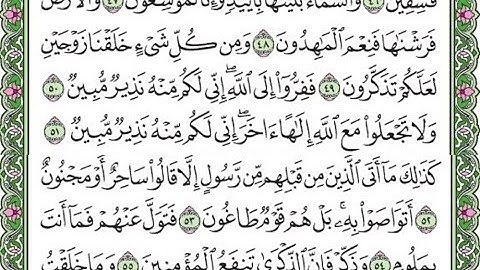 فَٰسِقِينَ ﴿٤٦﴾ وَٱلسَّمَآءَ بَنَيْنَٰهَا بِأَيْي۟دٍ وَإِنَّا لَمُوسِعُونَ ﴿٤٧﴾ وَٱلْأَرْضَ
فَرَشْنَٰهَا فَنِعْمَ ٱلْمَٰهِدُونَ ﴿٤٨﴾ وَمِن كُلِّ شَىْءٍ خَلَقْنَا زَوْجَيْنِ
لَعَلَّكُمْ تَذَكَّرُونَ ﴿٤٩﴾ فَفِرُّوٓا۟ إِلَى ٱللَّهِ ۖ إِنِّى لَكُم مِّنْهُ نَذِيرٌ مُّبِينٌ ﴿٥٠﴾
وَلَا تَجْعَلُوا۟ مَعَ ٱللَّهِ إِلَٰهًا ءَاخَرَ ۖ إِنِّى لَكُم مِّنْهُ نَذِيرٌ مُّبِينٌ ﴿٥١﴾
كَذَٰلِكَ مَآ أَتَى ٱلَّذِينَ مِن قَبْلِهِم مِّن رَّسُولٍ إِلَّا قَالُوا۟ سَاحِرٌ أَوْ مَجْنُونٌ
﴿٥٢﴾ أَتَوَاصَوْا۟ بِهِۦ ۚ بَلْ هُمْ قَوْمٌ طَاغُونَ ﴿٥٣﴾ فَتَوَلَّ عَنْهُمْ فَمَآ أَنتَ
بِمَلُومٍ ﴿٥٤﴾ وَذَكِّرْ فَإِنَّ ٱلذِّكْرَىٰ تَنفَعُ ٱلْمُؤْمِنِينَ ﴿٥٥﴾ وَمَا خَلَقْتُ